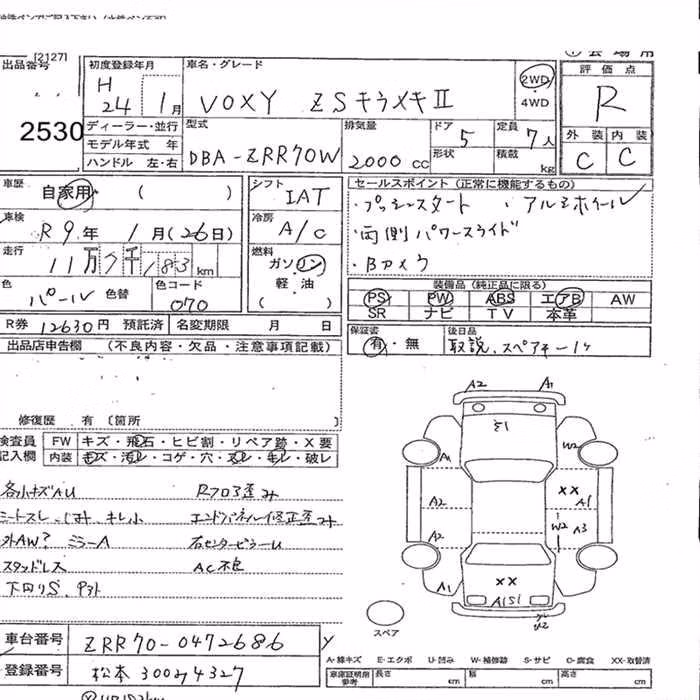 [2127]
出品番号
2530
初度登録年月
H 24 1月
車名・グレード
VOXY ZSキラメキⅡ
2WD
4WD
評価点
R
外装 内装
C C
ディーラー・並行
モデル年式 年
ハンドル 左・右
型式
DBA-ZRR70W
排気量
2000 cc
ドア
5
形状
定員
7人
積載
kg
車歴
自家用 ( )
シフト
IAT
セールスポイント(正常に機能するもの)
・プッシュスタート ・アルミホイール
・両側パワースライド
・Bカメラ
車検
R9年 1月(26日)
冷房
A/C
走行
11万7千183km
燃料
ガソリン
軽・油
( )
色
パール
色替
色コード
070
装備品(純正品に限る)
PS PW ABS エアB AW
SR ナビ TV 本革
R券 12630円 預託済 名変期限 月 日
保証書
有・無
後日品
取説、スペアキー1ケ
出品店申告欄 (不良内容・欠品・注意事項記載)
修復歴 有 〔箇所
検査員
記入欄
FW キズ・飛石・ヒビ割・リペア跡・X要
内装 キズ・汚レ・コゲ・穴・スレ・キレ・破レ
各小キズAU
Rフロア歪み
シートスレ、しみ、キレ小
エンドパネル修正歪み
外AW? ミラーA
右センターピラーU
スタッドレス
AC不良
下回りS、Pヌケ
A2 A1
E1
A1 W2
A2 XX A1
W2 A3
A2
A1 XX A1
A1S1
U2
スペア
車台番号 ZRR70-0472686
登録番号 松本 300ろ4327
A-線キズ E-エクボ U-凹み W-補修跡 S-サビ C-腐食 XX-取替済
車庫証明用
参考
長さ cm 幅 cm 高さ cm